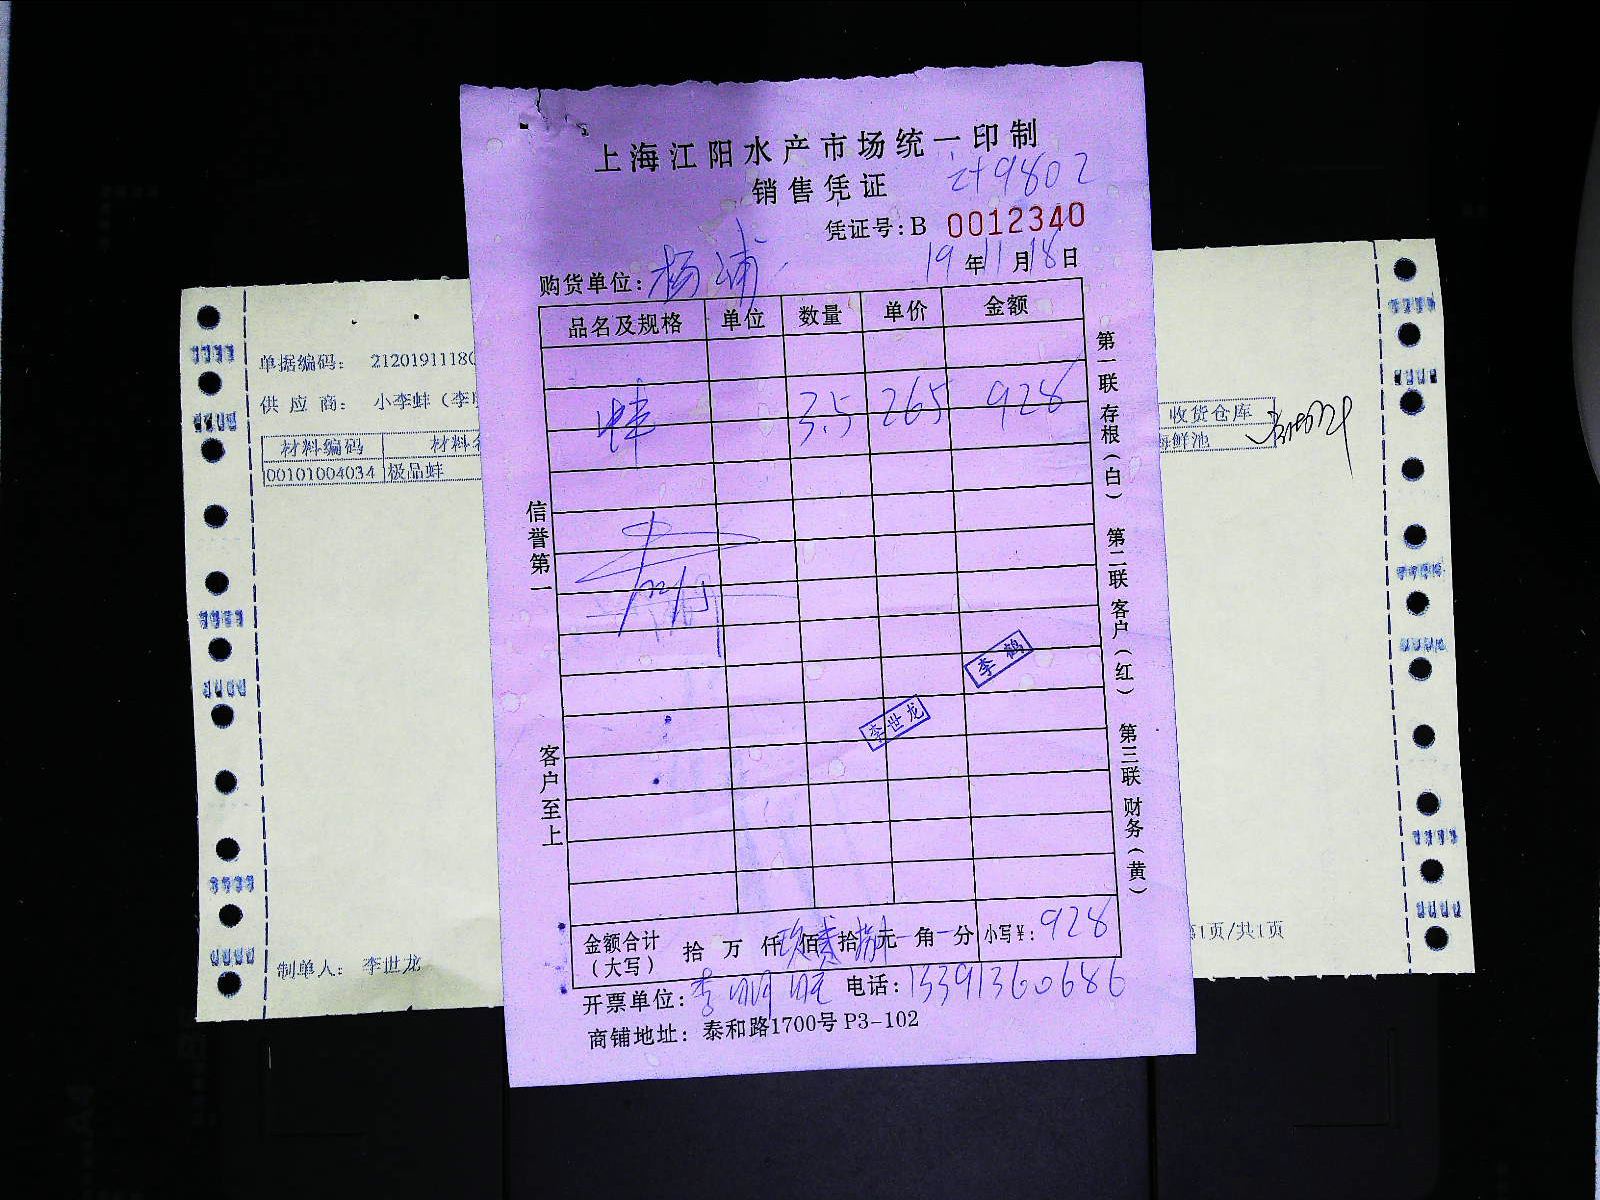 上海江阳水产市场统一印制
销售凭证
计9802
凭证号:B 0012340
购货单位:杨浦
19年11月18日
品名及规格 单位 数量 单价 金额
蚌 3.5 265 928
信誉第一
客户至上
李鹤
李世龙
第一联 存根(白) 第二联 客户(红) 第三联 财务(黄)
金额合计(大写) 拾 万 仟玖佰贰拾捌元-角-分 小写¥:928
开票单位:李明旺 电话:13391360686
商铺地址:泰和路1700号P3-102
单据编码: 2120191118
供应商: 小李蚌(李
材料编码 材料
00101004034 极品蚌
收货仓库
海鲜池
制单人: 李世龙
第1页/共1页